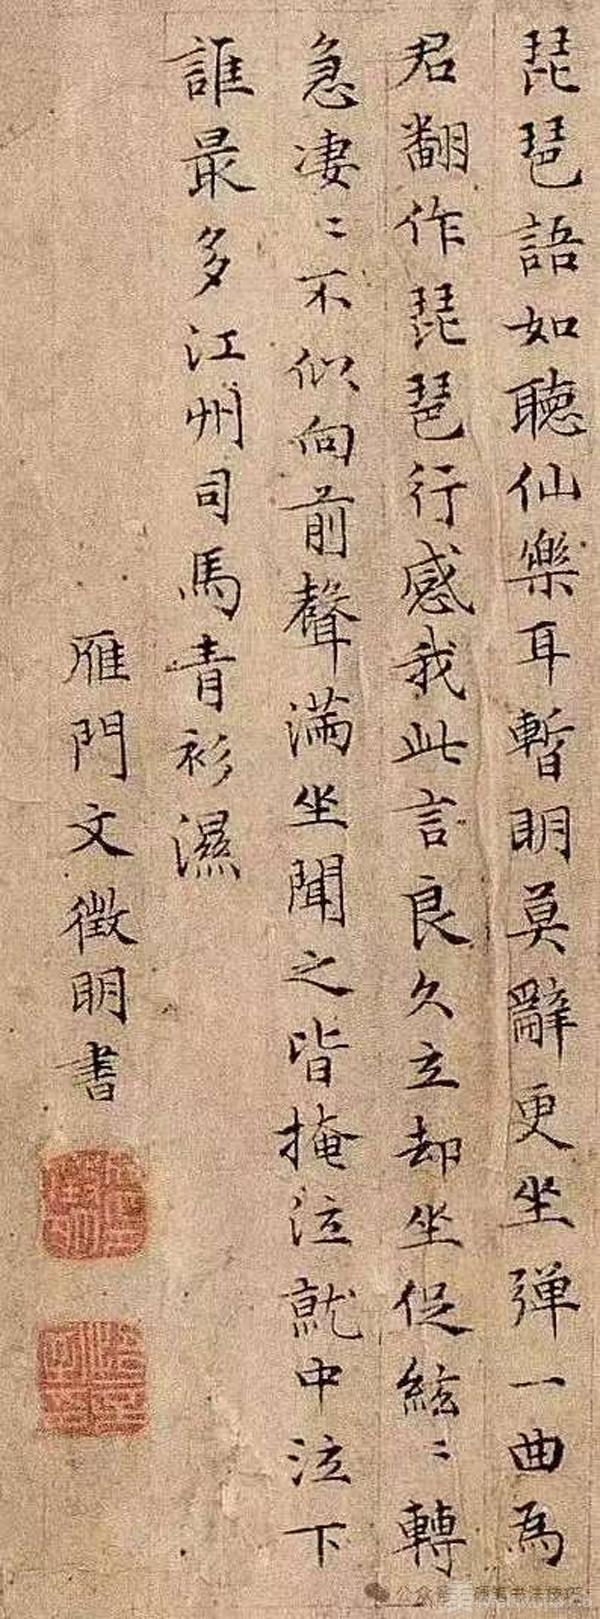 琵琶語如聴仙樂耳暫明莫辭更坐弾一曲為
君翻作琵琶行感我此言良久立却坐促絃〻轉
急凄〻不似向前聲滿坐聞之皆掩泣就中泣下
誰最多江州司馬青衫濕
雁門文徵明書
公众号